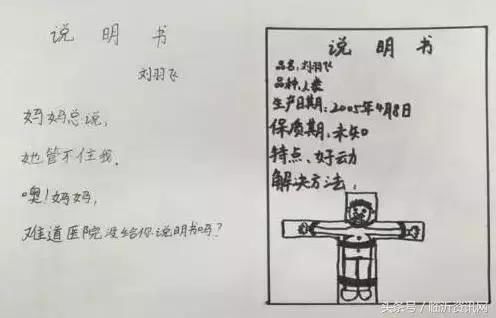 说明书
刘羽飞
妈妈总说,
她管不住我.
噢!妈妈,
难道医院没给你说明书吗?
说明书
品名:刘羽飞
品种:人类
生产日期:2005年4月8日
保质期:未知
特点:好动
解决方法:
头条号/临沂资讯网